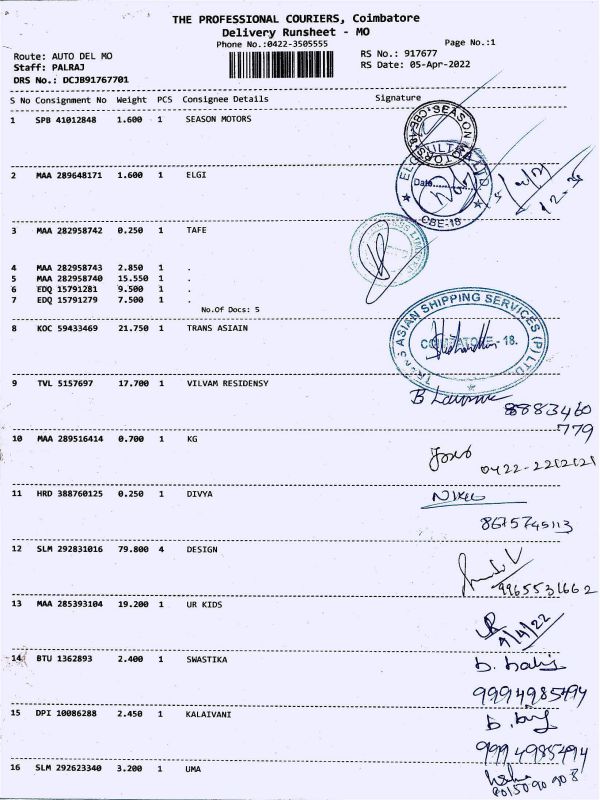 THE PROFESSIONAL COURIERS, Coimbatore
Delivery Runsheet - MO
Phone No.:0422-3505555
Page No.:1
Route: AUTO DEL MO
RS No.: 917677
Staff: PALRAJ
RS Date: 05-Apr-2022
DRS No.: DCJB91767701
S No Consignment No Weight PCS Consignee Details Signature
1 SPB 41012848 1.600 1 SEASON MOTORS
SEASON MOTORS CBE-18
2 MAA 289648171 1.600 1 ELGI
Date
CBE-18
3 MAA 282958742 0.250 1 TAFE
4 MAA 282958743 2.850 1 .
5 MAA 282958740 15.550 1 .
6 EDQ 15791281 9.500 1 .
7 EDQ 15791279 7.500 1 .
No.Of Docs: 5
8 KOC 59433469 21.750 1 TRANS ASIAIN
TRANS ASIAN SHIPPING SERVICES (P) LTD
COIMBATORE - 18.
9 TVL 5157697 17.700 1 VILVAM RESIDENSY
8883460
779
10 MAA 289516414 0.700 1 KG
0422-2212121
11 HRD 388760125 0.250 1 DIVYA
8675745113
12 SLM 292831016 79.800 4 DESIGN
9965531662
13 MAA 285393104 19.200 1 UR KIDS
4/4/22
14 BTU 1362893 2.400 1 SWASTIKA
9994985494
15 DPI 10086288 2.450 1 KALAIVANI
9994985494
16 SLM 292623340 3.200 1 UMA